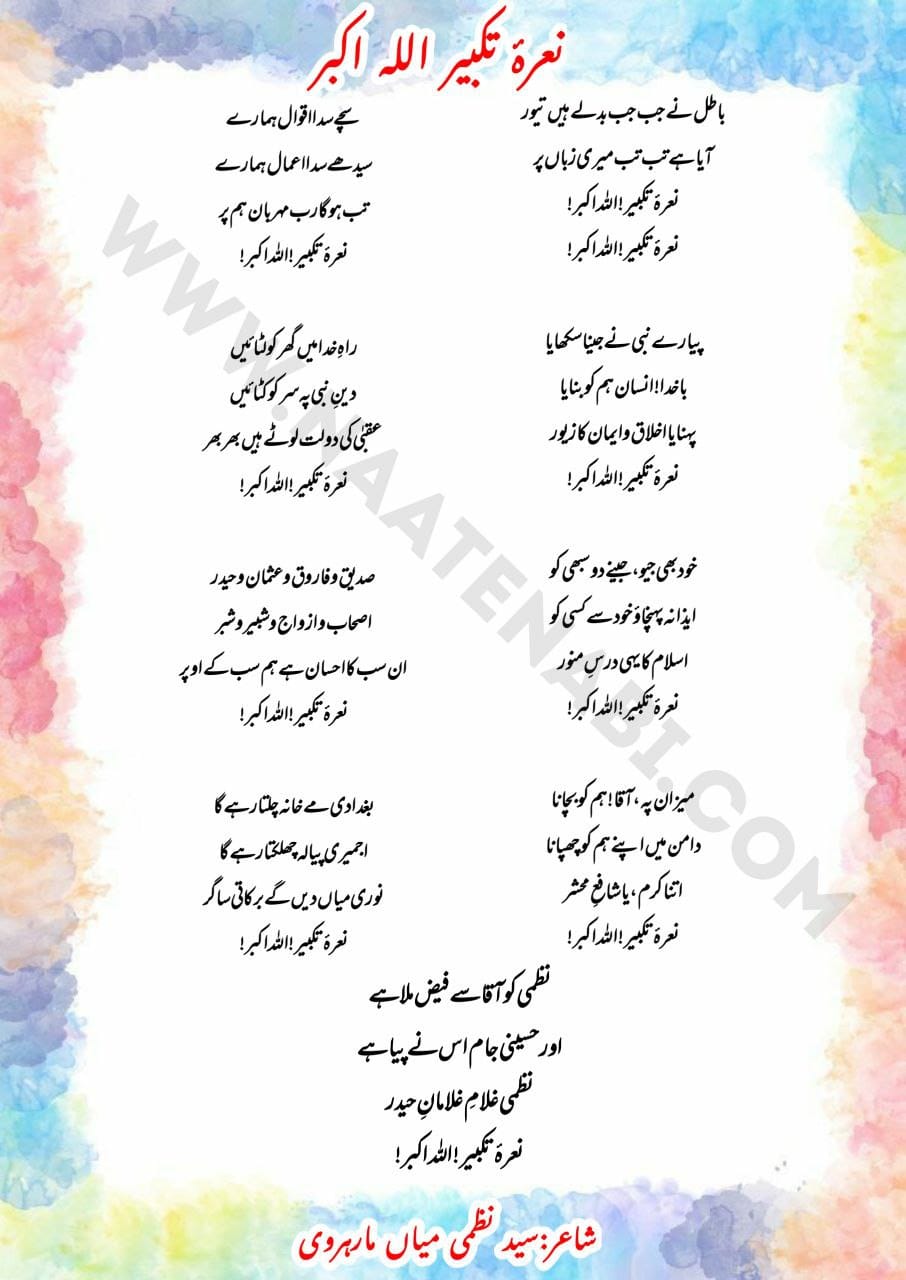 نعرۂ تکبیر اللہ اکبر
باطل نے جب جب بدلے ہیں تیور
آیا ہے تب تب میری زباں پر
نعرۂ تکبیر! اللہ اکبر!
نعرۂ تکبیر! اللہ اکبر!
سچے سدا اقوال ہمارے
سیدھے سدا اعمال ہمارے
تب ہوگا رب مہربان ہم پر
نعرۂ تکبیر! اللہ اکبر!
پیارے نبی نے جینا سکھایا
باخدا! انسان ہم کو بنایا
پہنایا اخلاق و ایمان کا زیور
نعرۂ تکبیر! اللہ اکبر!
راہِ خدا میں گھر کو لٹائیں
دینِ نبی پہ سر کو کٹائیں
عقبیٰ کی دولت لوٹے ہیں بھر بھر
نعرۂ تکبیر! اللہ اکبر!
خود بھی جیو، جینے دو سبھی کو
ایذا نہ پہنچاؤ خود سے کسی کو
اسلام کا یہی درسِ منور
نعرۂ تکبیر! اللہ اکبر!
صدیق و فاروق و عثمان و حیدر
اصحاب و ازواج و شبیر و شبر
ان سب کا احسان ہے ہم سب کے اوپر
نعرۂ تکبیر! اللہ اکبر!
میزان پہ، آقا! ہم کو بچانا
دامن میں اپنے ہم کو چھپانا
اتنا کرم، یا شافعِ محشر
نعرۂ تکبیر! اللہ اکبر!
بغدادی مے خانہ چلتا رہے گا
اجمیری پیالہ چھلکتا رہے گا
نوری میاں دیں گے برکاتی ساگر
نعرۂ تکبیر! اللہ اکبر!
نظمی کو آقا سے فیض ملا ہے
اور حسینی جام اس نے پیا ہے
نظمی غلامِ غلامانِ حیدر
نعرۂ تکبیر! اللہ اکبر!
شاعر: سید نظمی میاں مارہروی
WWW.NAATENABI.COM